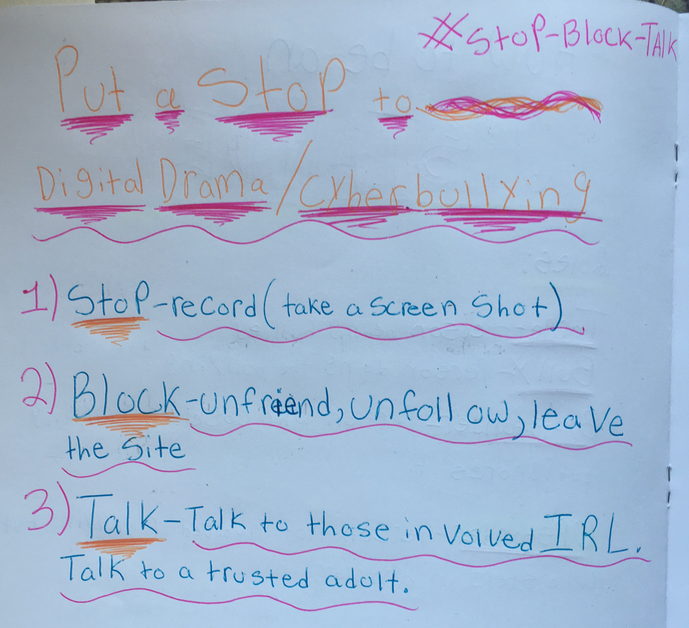 #Stop-Block-Talk
Put a Stop to
Digital Drama/Cyberbullying
1) Stop-record(take a screen shot)
2) Block-unfriend, unfollow, leave
the site
3) Talk-Talk to those involved IRL.
Talk to a trusted adult.